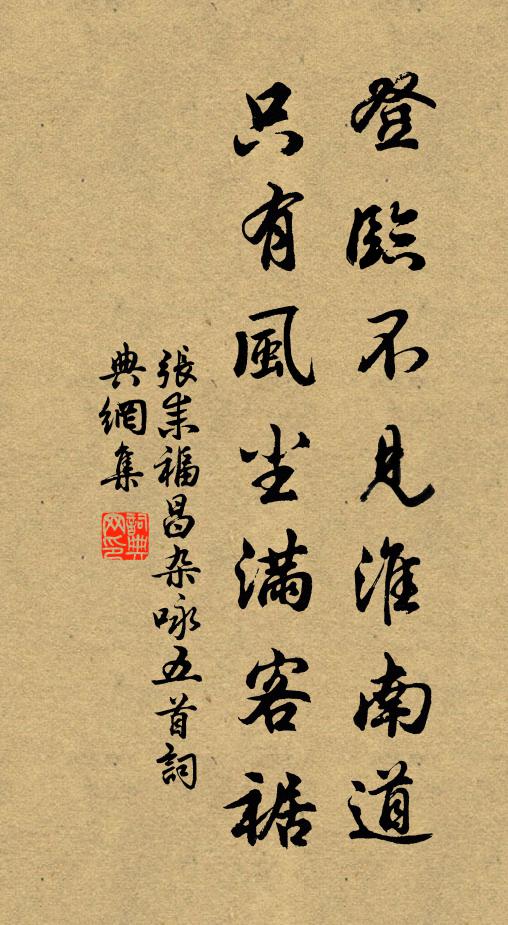 登臨不見淮南道
只有風尘满客裾
張耒福昌杂咏五首詞
典網集
詞典网印